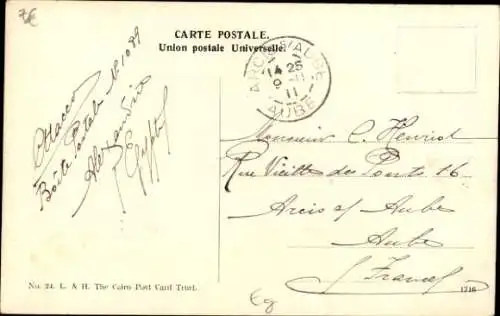 7€
CARTE POSTALE.
Union postale Universelle.
ARCIS S/AUBE
14 25
9 - 11
11
AUBE
Ottacco
Boîte Postale No 1089
Alexandrie
Egypte
Monsieur C. Henriot
Rue Vieille des Ponts 16
Arcis s/ Aube
Aube
(France)
No. 24. L. & H. The Cairo Post Card Trust.
Eg
1716